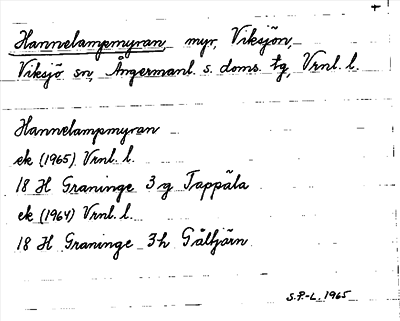 Hannelampmyran, myr, Viksjön,
Viksjö sn, Ångermanl. s. doms. tg, Vrnl. l.
Hannelampmyran
ek (1965) Vrnl. l.
18 H Graninge 3 g Tappäla
ek (1964) Vrnl. l.
18 H Graninge 3 h Gåltjärn
S.P.-L. 1965